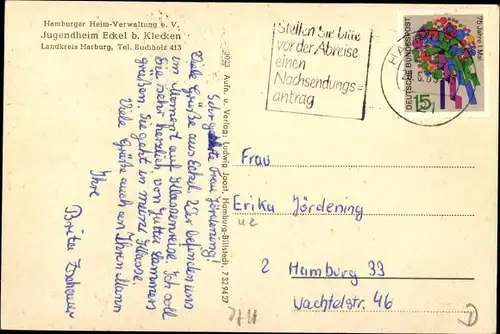 Hamburger Heim-Verwaltung e. V.
Jugendheim Eckel b. Klecken
Landkreis Harburg, Tel. Buchholz 413
Sehr geehrte Frau Jördening!
Viele Grüße aus Eckel. Wir befinden uns
im Moment auf Klassenreise. Ich soll
Sie sehr herzlich von Jutta Lammers
grüßen. Sie geht in meine Klasse.
Viele Grüße auch an Ihren Mann
Ihre
Britta
3029 Aufn. u. Verlag: Ludwig Joost, Hamburg-Billstedt, 7 32 94 27
Stellen Sie bitte
vor der Abreise
einen
Nachsendungs=
antrag
HA
75 Jahre 1. Mai
DEUTSCHE BUNDESPOST
15
Frau
Erika Jördening
2 Hamburg 33
Wachtelstr. 46